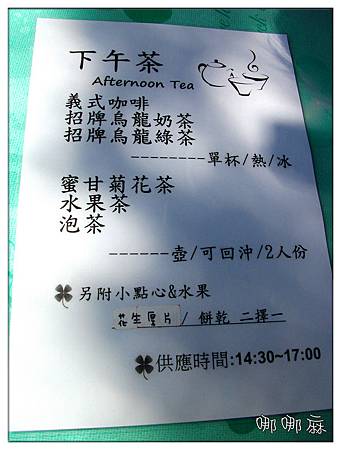 下午茶
Afternoon Tea
義式咖啡
招牌烏龍奶茶
招牌烏龍綠茶
--------單杯/熱/冰
蜜甘菊花茶
水果茶
泡茶
------壺/可回沖/2人份
另附小點心&水果
花生厚片/ 餅乾 二擇一
供應時間:14:30~17:00
哪哪麻